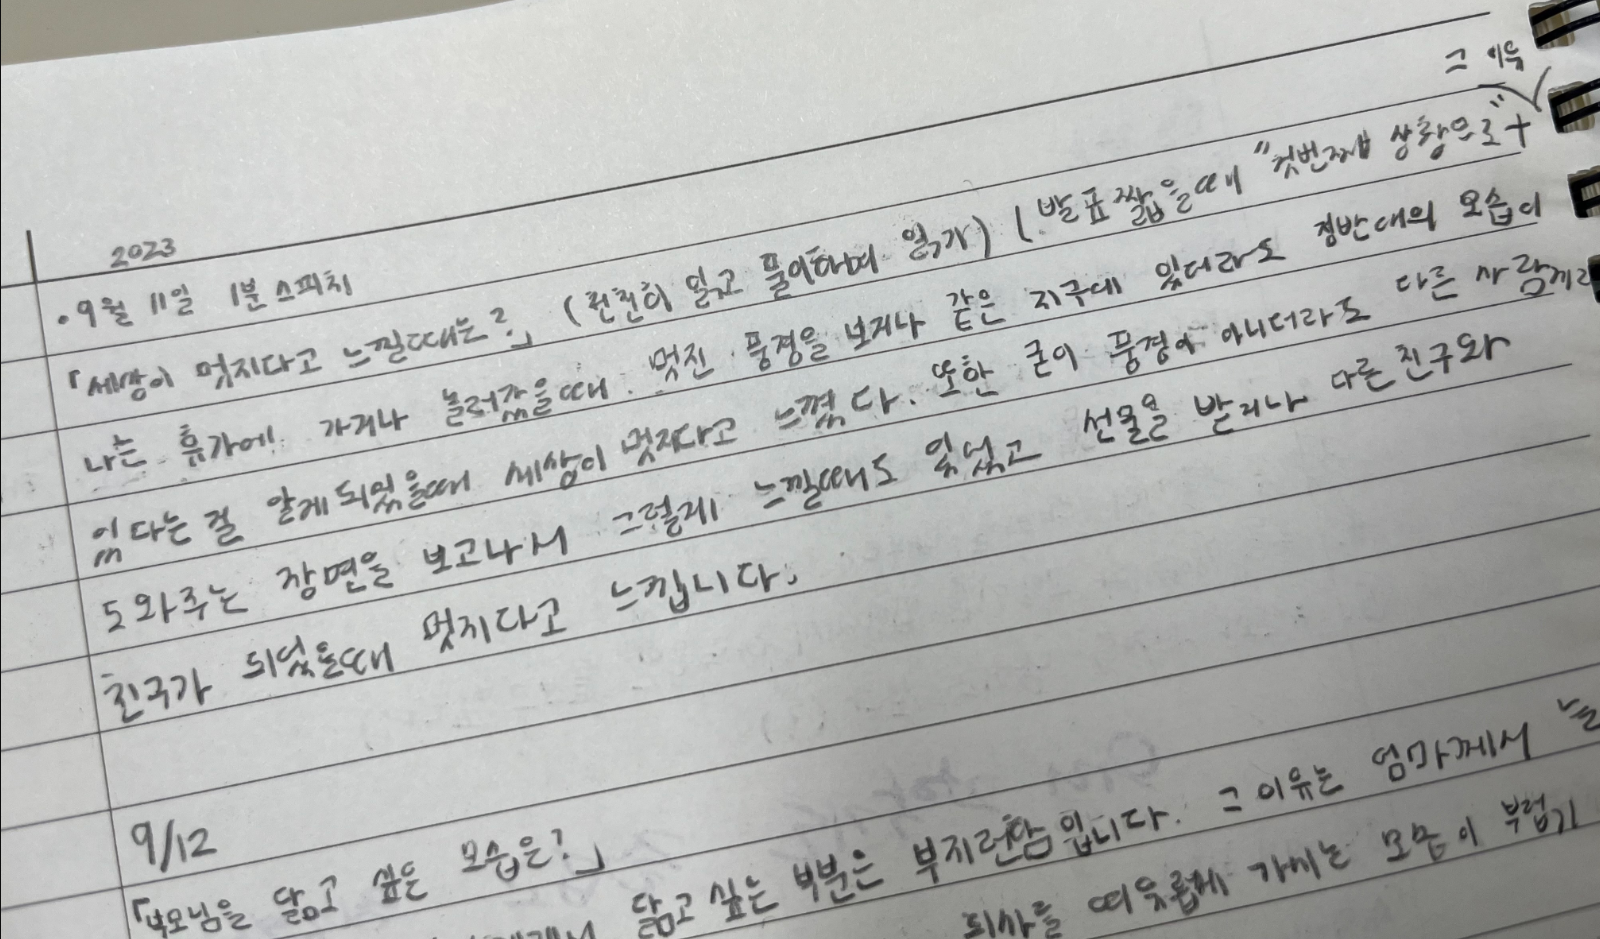 2023
그 이유
· 9월 11일 1분 스피치
「세상이 멋지다고 느낄때는?」 (천천히 읽고 풀이하며 읽기) (발표 짧을때 "첫번째 상황으로" +
나는 휴가에 가거나 놀러갔을때 멋진 풍경을 보거나 같은 지구에 있더라도 정반대의 모습이
있다는 걸 알게 되었을때 세상이 멋지다고 느꼈다. 또한 굳이 풍경이 아니더라도 다른 사람께
도와주는 장면을 보고나서 그렇게 느낄때도 있었고 선물을 받거나 다른 친구와
친구가 되었을때 멋지다고 느낍니다.
9/12
「부모님을 닮고 싶은 모습은?」
닮고 싶는 부분은 부지런함 입니다. 그 이유는 엄마께서 늘
회사를 가시는 모습이 부럽기